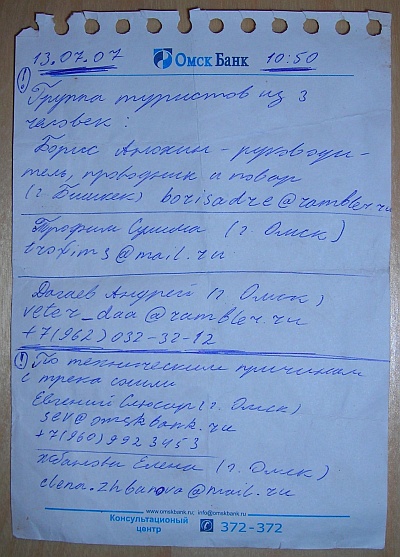 13.07.07 ОмскБанк 10:50
! Группа туристов из 3
человек:
Борис Анохин - руководи-
тель, проводник и повар
(г. Бишкек) borisadre@rambler.ru
Трофим Сушма (г. Омск)
trofims@mail.ru
Дагаев Андрей (г. Омск)
veter_daa@rambler.ru
+7(962)032-32-12
! По техническим причинам
с трека сошли
Евгений Слюсар (г. Омск)
sev@omskbank.ru
+7(960)9923453
Жбанова Елена (г. Омск)
elena.zhbanova@mail.ru
www.omskbank.ru; info@omskbank.ru
Консультационный
центр
372-372